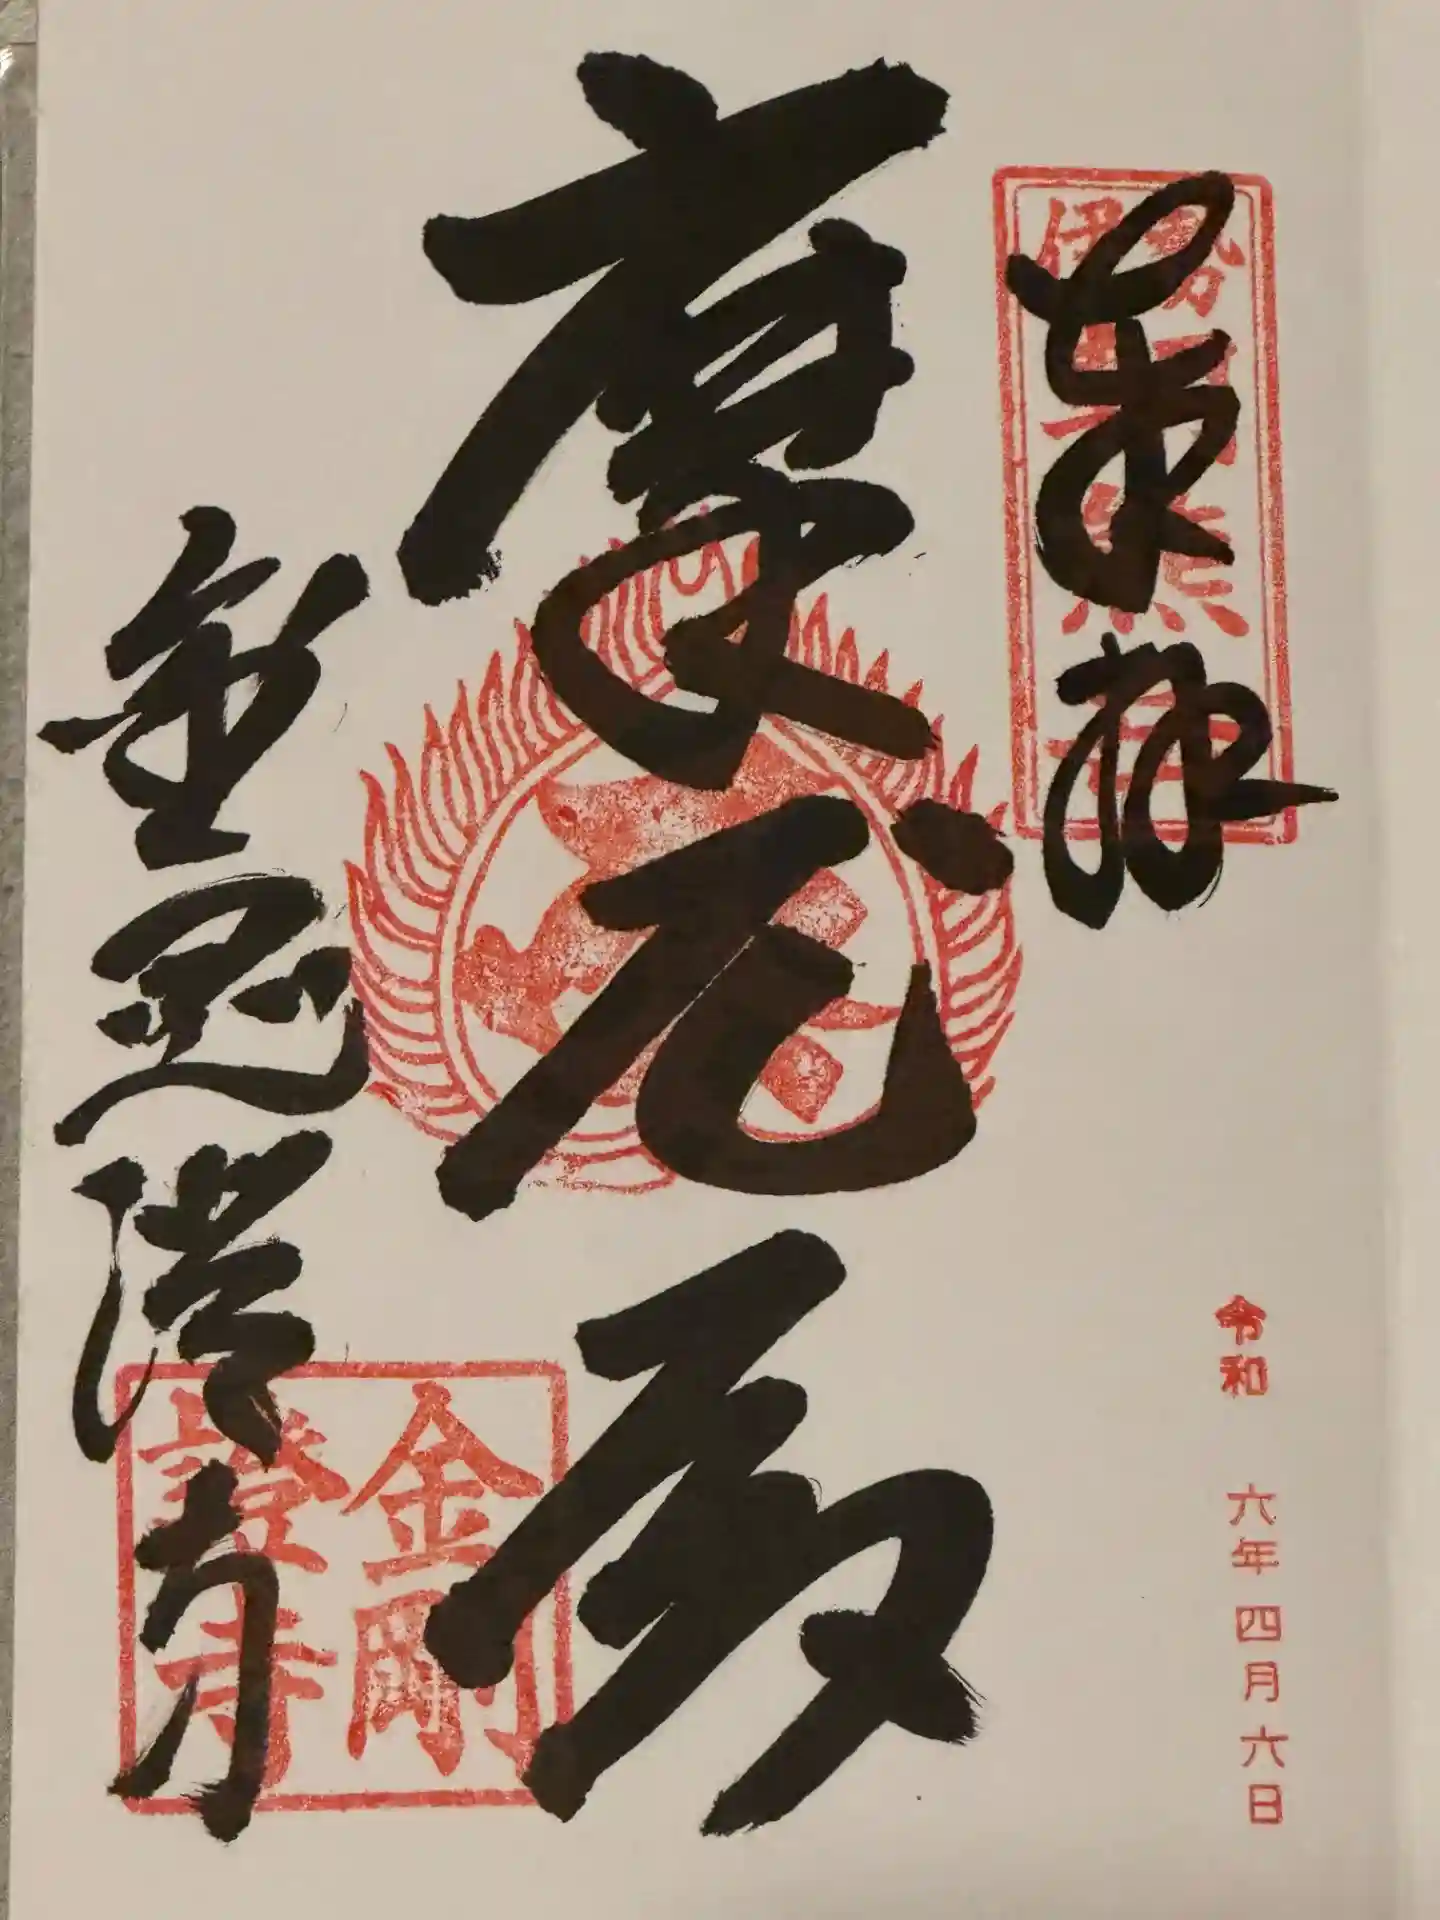 奉拝
伊勢
令和 六年四月六日
摩尼殿
金剛證寺
金剛
證寺